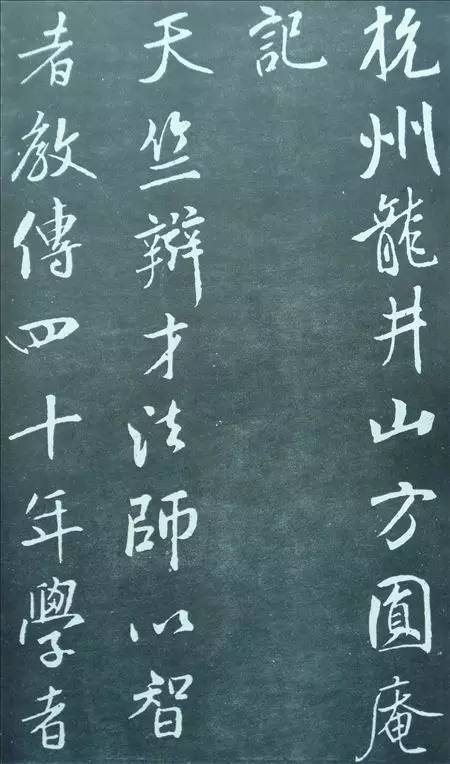 杭州龍井山方圓庵
記
天竺辯才法師以智
者教傳四十年學者